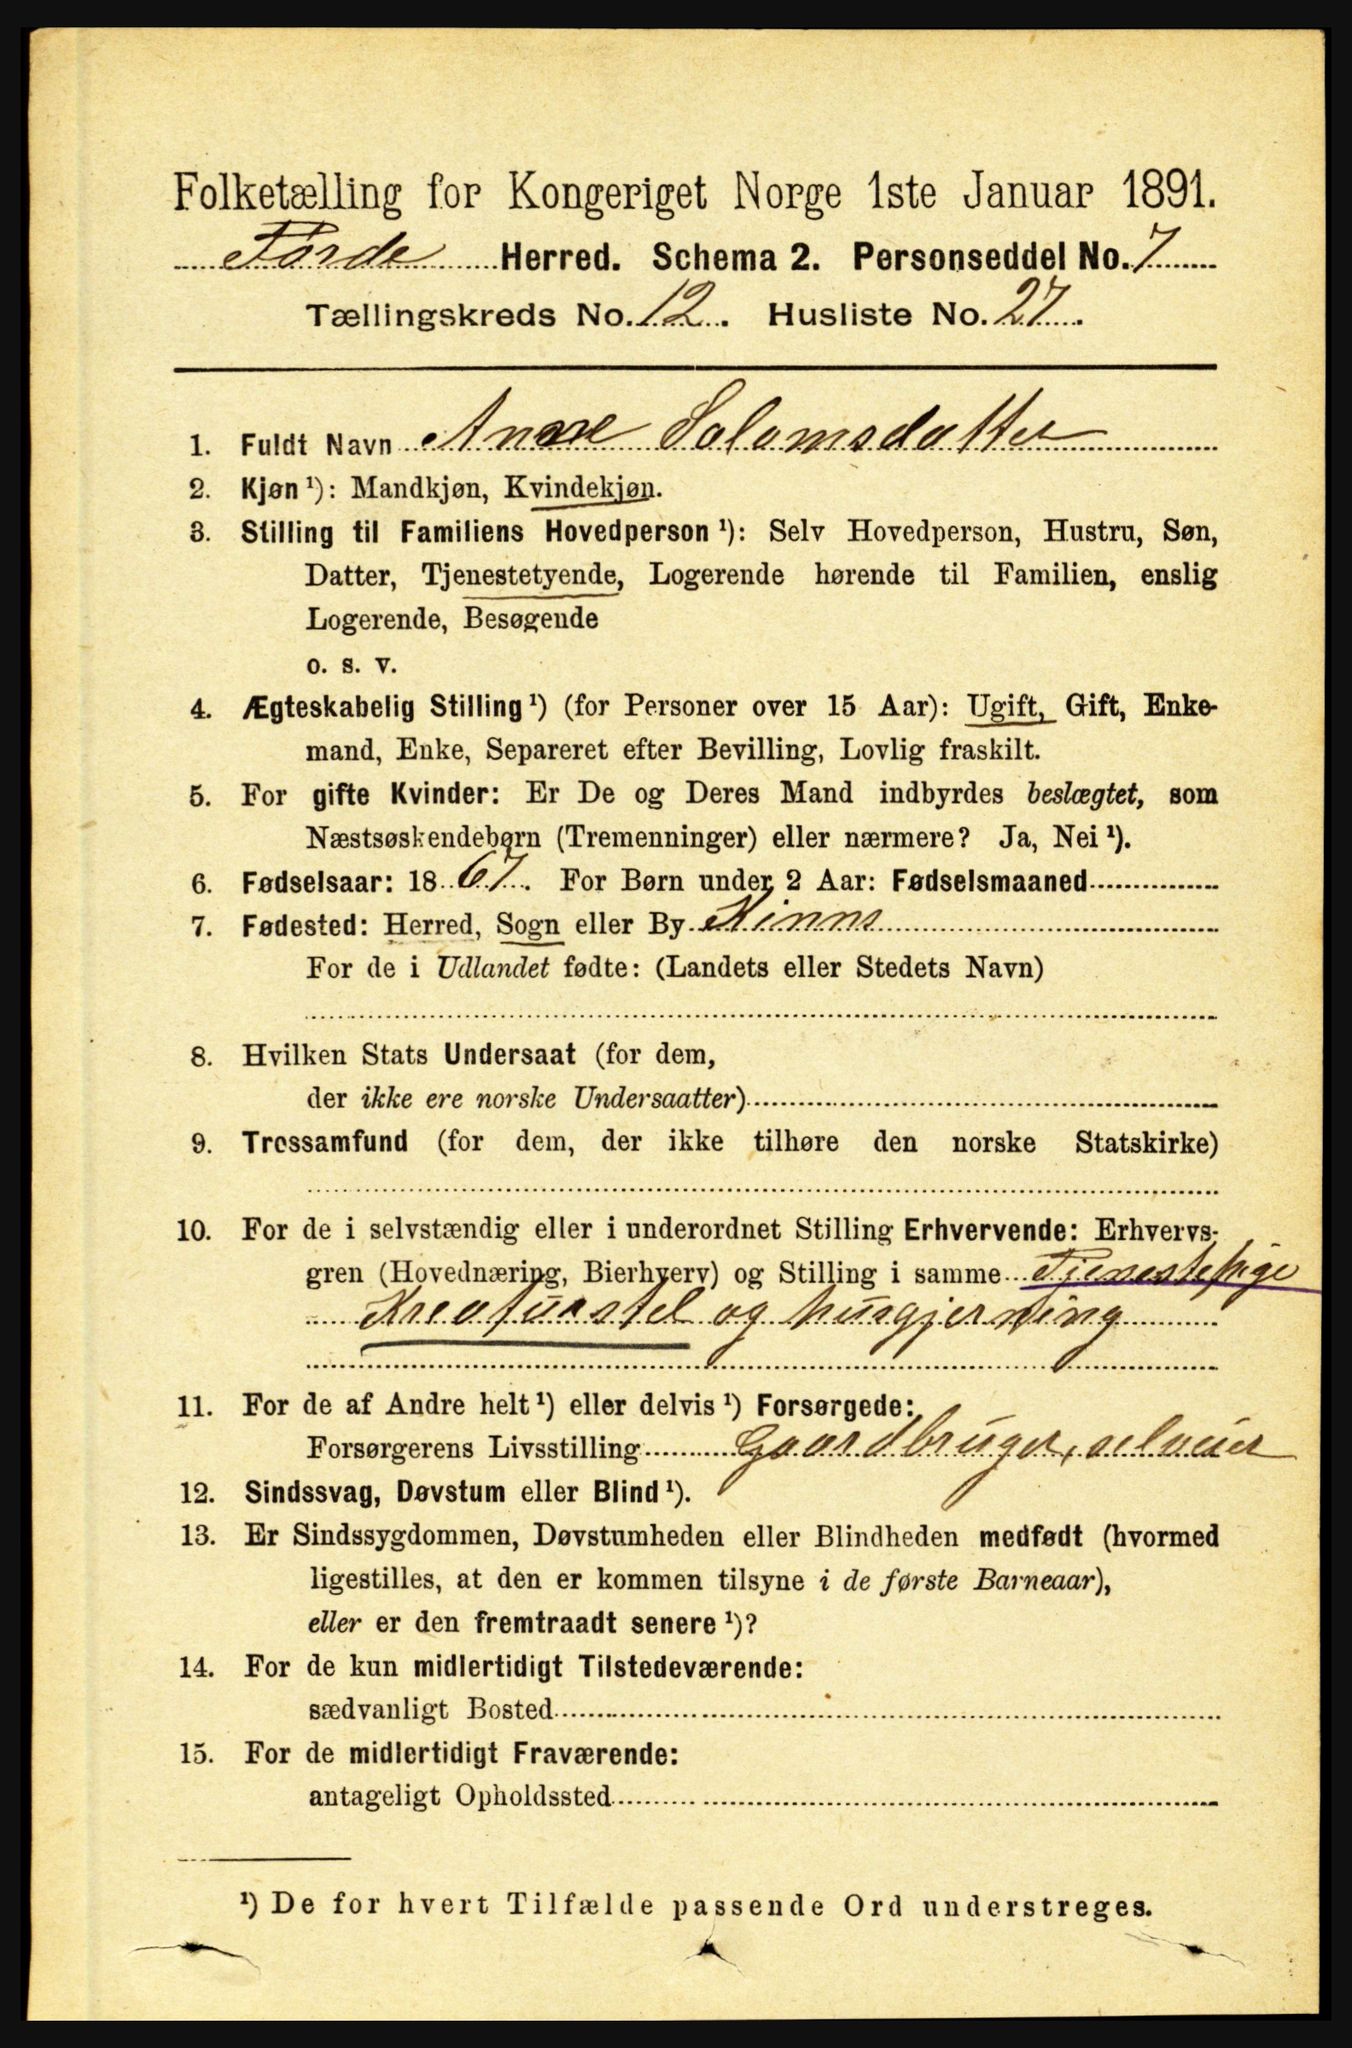 Folketælling for Kongeriget Norge 1ste Januar 1891.
Førde Herred. Schema 2. Personseddel No. 7
Tællingskreds No. 12. Husliste No. 27.
1. Fuldt Navn Anne Salamsdatter
2. Kjøn ¹): Mandkjøn, Kvindekjøn.
3. Stilling til Familiens Hovedperson ¹): Selv Hovedperson, Hustru, Søn,
Datter, Tjenestetyende, Logerende hørende til Familien, enslig
Logerende, Besøgende
o. s. v.
4. Ægteskabelig Stilling ¹) (for Personer over 15 Aar): Ugift, Gift, Enke-
mand, Enke, Separeret efter Bevilling, Lovlig fraskilt.
5. For gifte Kvinder: Er De og Deres Mand indbyrdes beslægtet, som
Næstsøskendebørn (Tremenninger) eller nærmere? Ja, Nei ¹).
6. Fødselsaar: 1867. For Børn under 2 Aar: Fødselsmaaned
7. Fødested: Herred, Sogn eller By Kinns
For de i Udlandet fødte: (Landets eller Stedets Navn)
8. Hvilken Stats Undersaat (for dem,
der ikke ere norske Undersaatter)
9. Trossamfund (for dem, der ikke tilhøre den norske Statskirke)
10. For de i selvstændig eller i underordnet Stilling Erhvervende: Erhvervs-
gren (Hovednæring, Bierhverv) og Stilling i samme Tjenestepige
Kreaturstel og husgjerning
11. For de af Andre helt ¹) eller delvis ¹) Forsørgede:
Forsørgerens Livsstilling Gaardbruger, selveier
12. Sindssvag, Døvstum eller Blind ¹).
13. Er Sindssygdommen, Døvstumheden eller Blindheden medfødt (hvormed
ligestilles, at den er kommen tilsyne i de første Barneaar),
eller er den fremtraadt senere ¹)?
14. For de kun midlertidigt Tilstedeværende:
sædvanligt Bosted
15. For de midlertidigt Fraværende:
antageligt Opholdssted
¹) De for hvert Tilfælde passende Ord understreges.